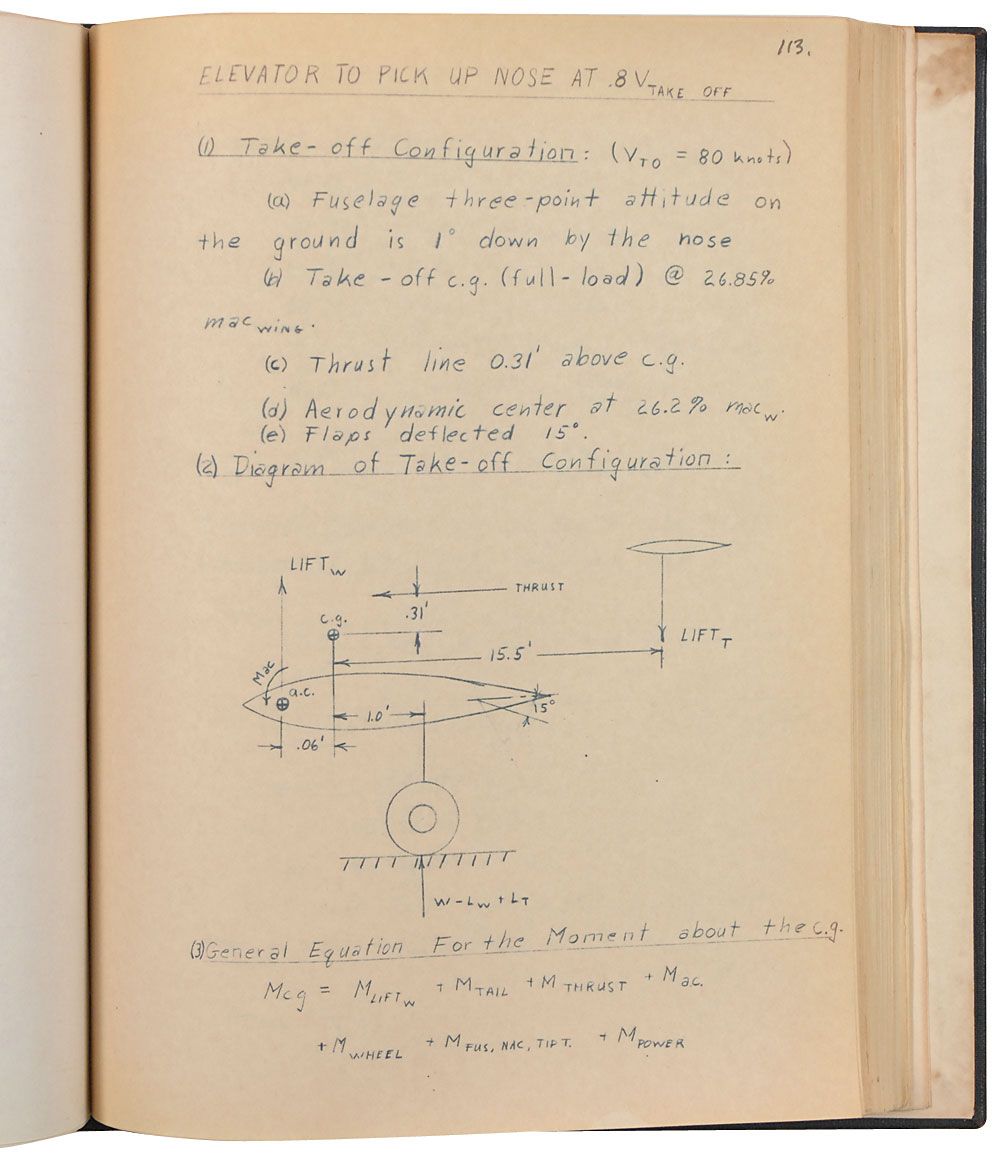 113.
ELEVATOR TO PICK UP NOSE AT .8 V TAKE OFF
(1) Take-off Configuration: (V TO = 80 knots)
(a) Fuselage three-point attitude on
the ground is 1° down by the nose
(b) Take-off c.g. (full-load) @ 26.85%
mac WING.
(c) Thrust line 0.31' above c.g.
(d) Aerodynamic center at 26.2% mac w.
(e) Flaps deflected 15°.
(2) Diagram of Take-off Configuration:
LIFT W
THRUST
.31'
c.g.
LIFT T
15.5'
Mac
a.c.
15°
1.0'
.06'
W-LW+LT
(3) General Equation For the Moment about the c.g.
Mcg = M LIFT W + M TAIL + M THRUST + M ac.
+ M WHEEL + M FUS, NAC, TIP T. + M POWER